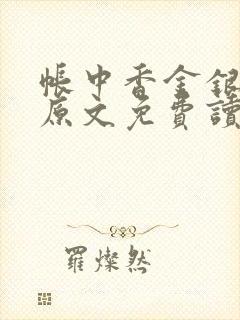 帳中香金銀
原文免費讀
羅燦然